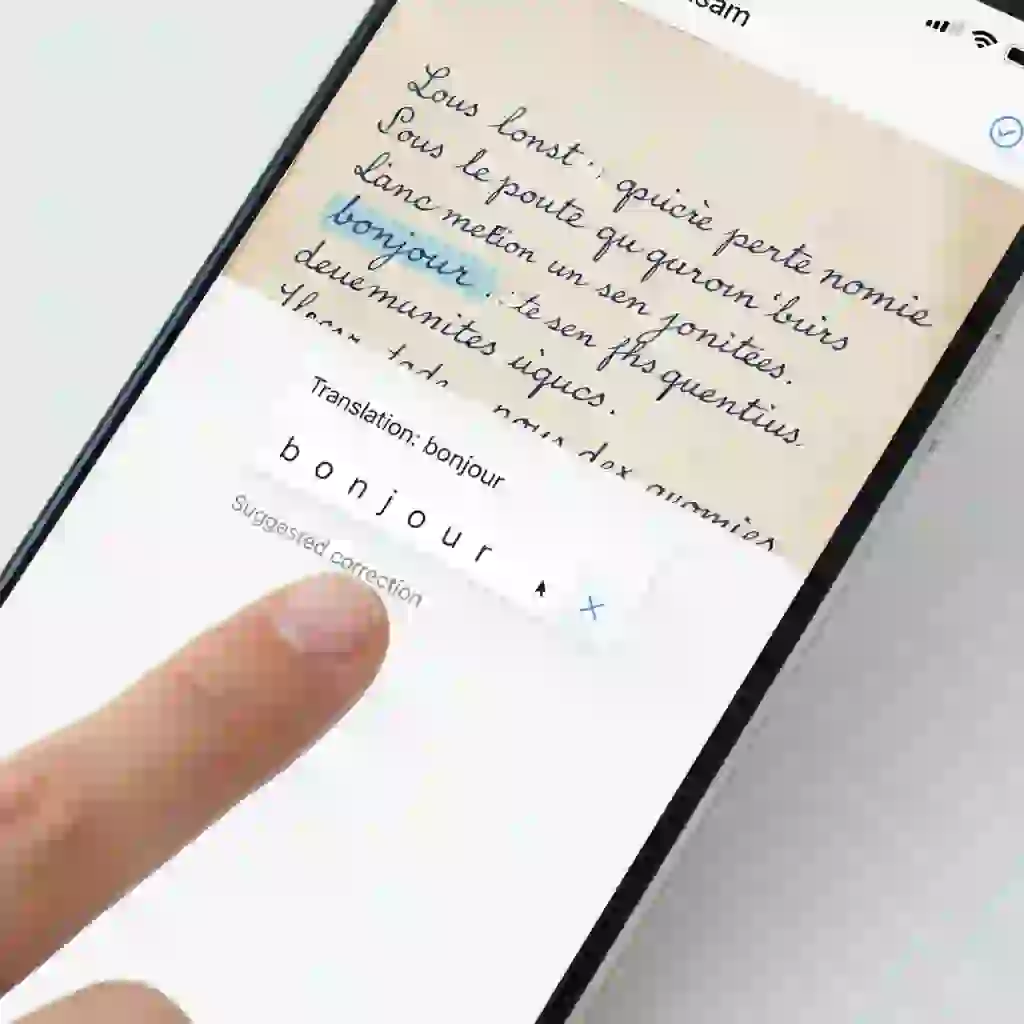 sam
Lous lonst , quicrè perte nomie
Sous le poute qu quroin 'buirs
L'anc metion un sen jonitées.
bonjour . : te sen fhs quentius.
deuemunites ùqucs.
nous dex
Translation: bonjour
bonjour
Suggested correction